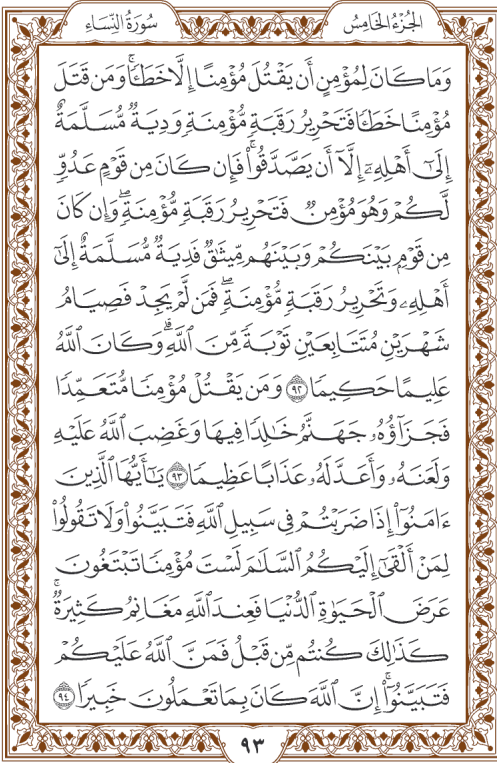 الجُزْءُ الخَامِسُ سُورَةُ النِّسَاءِ
وَمَا كَانَ لِمُؤْمِنٍ أَن يَقْتُلَ مُؤْمِنًا إِلَّا خَطَـًٔاۚ وَمَن قَتَلَ
مُؤْمِنًا خَطَـًٔا فَتَحْرِيرُ رَقَبَةٍ مُّؤْمِنَةٍ وَدِيَةٌ مُّسَلَّمَةٌ
إِلَىٰٓ أَهْلِهِۦٓ إِلَّآ أَن يَصَّدَّقُوا۟ۚ فَإِن كَانَ مِن قَوْمٍ عَدُوٍّ
لَّكُمْ وَهُوَ مُؤْمِنٌ فَتَحْرِيرُ رَقَبَةٍ مُّؤْمِنَةٍۖ وَإِن كَانَ
مِن قَوْمٍۭ بَيْنَكُمْ وَبَيْنَهُم مِّيثَـٰقٌ فَدِيَةٌ مُّسَلَّمَةٌ إِلَىٰٓ
أَهْلِهِۦ وَتَحْرِيرُ رَقَبَةٍ مُّؤْمِنَةٍۖ فَمَن لَّمْ يَجِدْ فَصِيَامُ
شَهْرَيْنِ مُتَتَابِعَيْنِ تَوْبَةً مِّنَ ٱللَّهِۗ وَكَانَ ٱللَّهُ
عَلِيمًا حَكِيمًا ٩٢ وَمَن يَقْتُلْ مُؤْمِنًا مُّتَعَمِّدًا
فَجَزَآؤُهُۥ جَهَنَّمُ خَـٰلِدًا فِيهَا وَغَضِبَ ٱللَّهُ عَلَيْهِ
وَلَعَنَهُۥ وَأَعَدَّ لَهُۥ عَذَابًا عَظِيمًا ٩٣ يَـٰٓأَيُّهَا ٱلَّذِينَ
ءَامَنُوٓا۟ إِذَا ضَرَبْتُمْ فِى سَبِيلِ ٱللَّهِ فَتَبَيَّنُوا۟ وَلَا تَقُولُوا۟
لِمَنْ أَلْقَىٰٓ إِلَيْكُمُ ٱلسَّلَـٰمَ لَسْتَ مُؤْمِنًا تَبْتَغُونَ
عَرَضَ ٱلْحَيَوٰةِ ٱلدُّنْيَا فَعِندَ ٱللَّهِ مَغَانِمُ كَثِيرَةٌۚ
كَذَٰلِكَ كُنتُم مِّن قَبْلُ فَمَنَّ ٱللَّهُ عَلَيْكُمْ
فَتَبَيَّنُوٓا۟ۚ إِنَّ ٱللَّهَ كَانَ بِمَا تَعْمَلُونَ خَبِيرًا ٩٤
٩٣